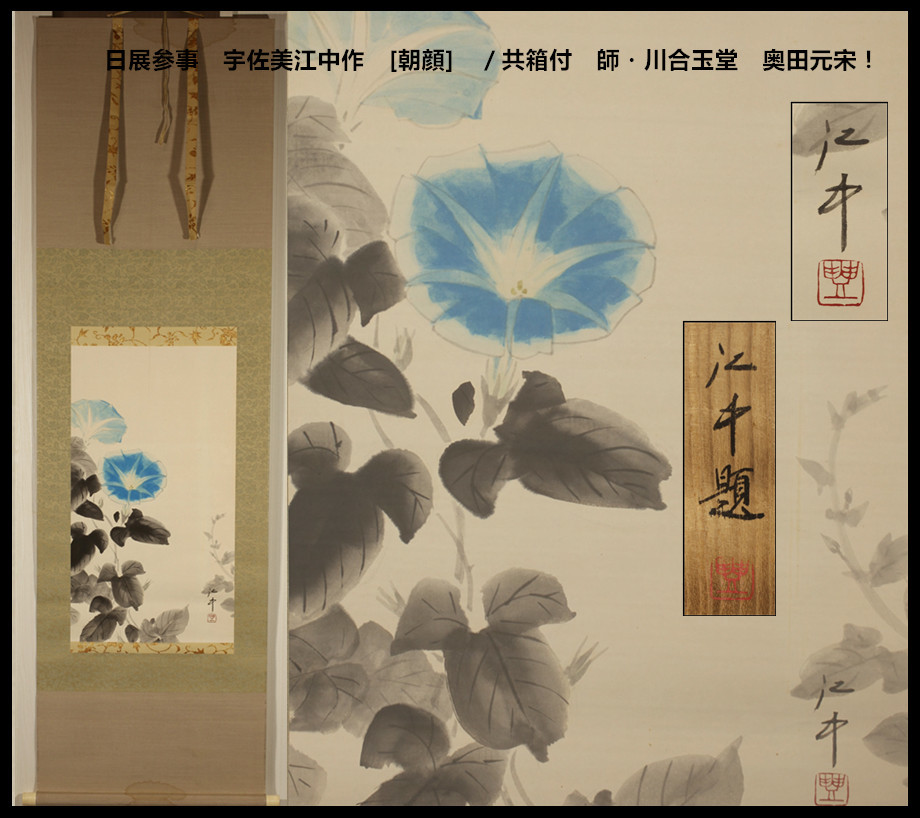 日展参事　宇佐美江中作　[朝顔]　/ 共箱付　師・川合玉堂　奥田元宋！
江中
豊
江中題
江中
豊
江中